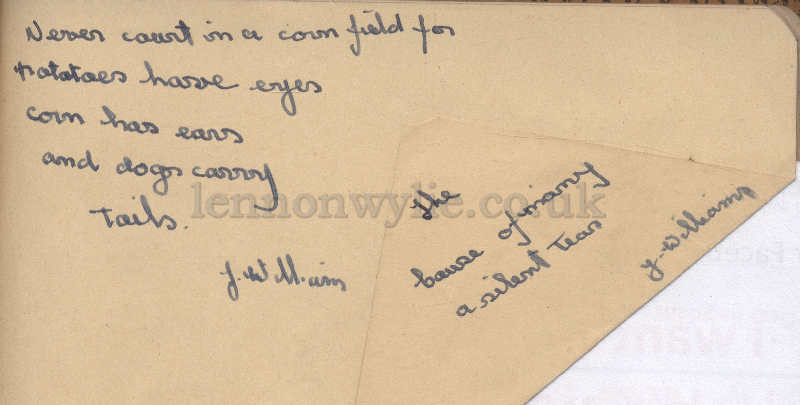 Never court in a corn field for
potatoes have eyes
corn has ears
and dogs carry
tails.
J. Williams
the
cause of many
a silent tear
J. Williams
lennonwylie.co.uk
Face
I want